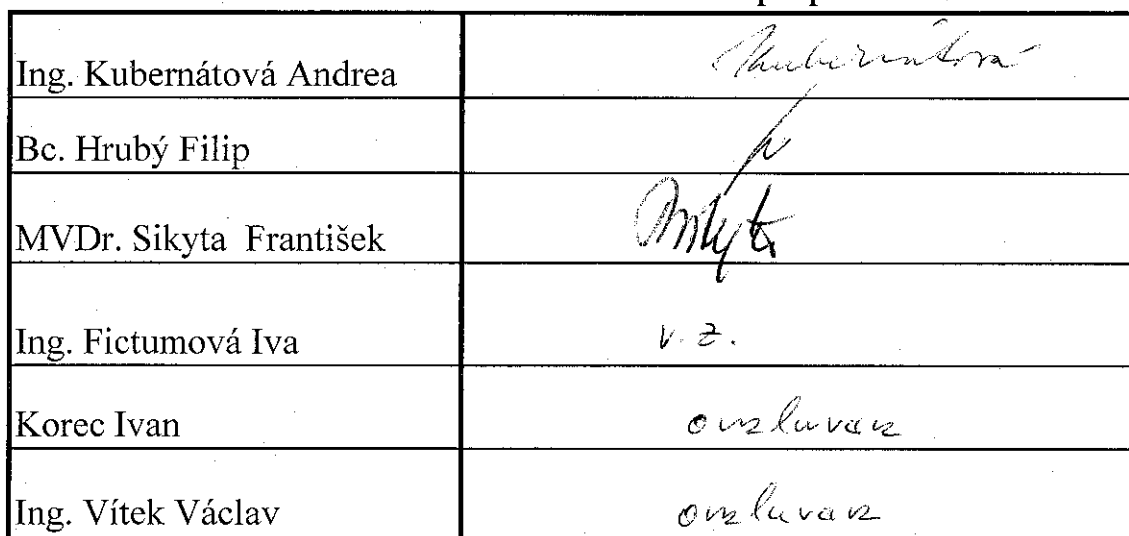 Ing. Kubernátová Andrea Kubernátová
Bc. Hrubý Filip
MVDr. Sikyta František Sikyta
Ing. Fictumová Iva v. z.
Korec Ivan omluven
Ing. Vítek Václav omluven